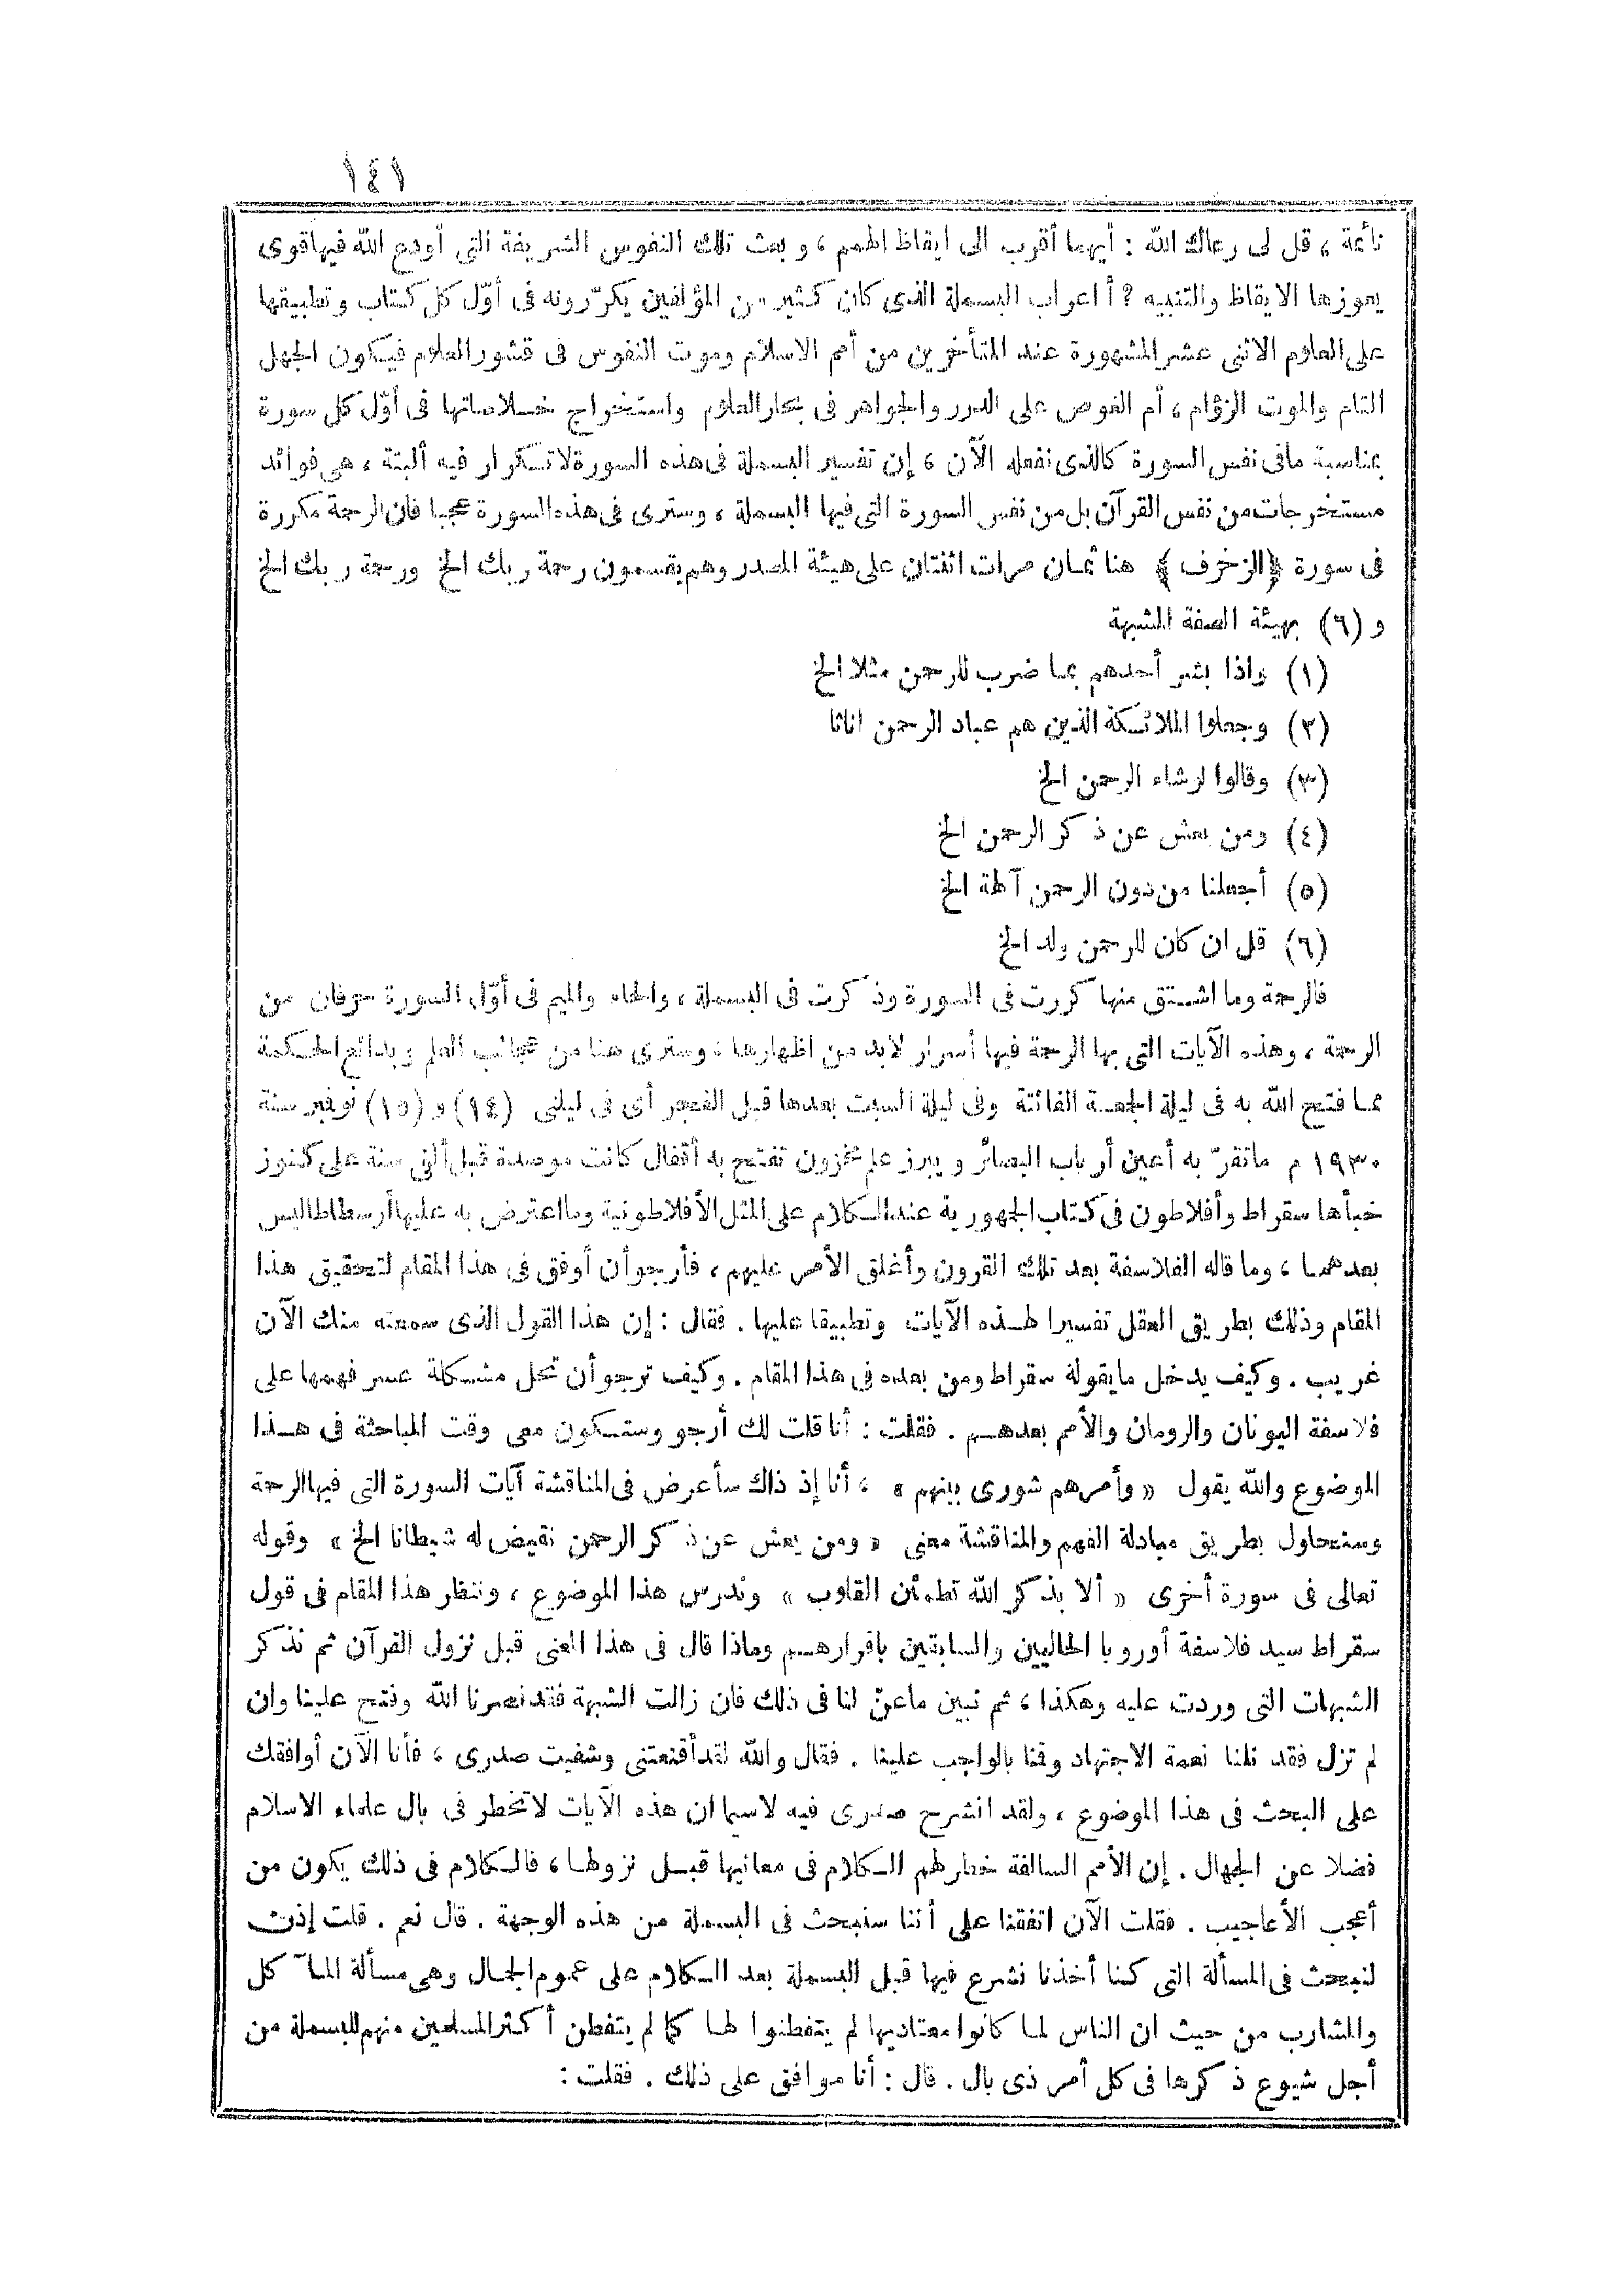 ١٤١
نائمة ، قل لى رعاك الله : أيهما أقرب الى ايقاظ الهمم ، وبعث تلك النفوس الشريفة التى أودع الله فيها قوى
يعوزها الايقاظ والتنبيه ؟ أاعراب البسملة الذى كان كثير من المؤلفين يكرّرونه فى أوّل كل كتاب وتطبيقها
على العلوم الاثنى عشر المشهورة عند المتأخرين من أمم الاسلام وموت النفوس فى قشور العلوم فيكون الجهل
التام والموت الزؤام ، أم الغوص على الدرر والجواهر فى بحار العلوم واستخراج خلاصاتها فى أوّل كل سورة
بمناسبة مافى نفس السورة كالذى نفعله الآن ، إن تفسير البسملة فى هذه السورة لاتكرار فيه ألبتة ، هى فوائد
مستخرجات من نفس القرآن بل من نفس السورة التى فيها البسملة ، وسترى فى هذه السورة عجبا فان الرحمة مكررة
فى سورة ﴿ الزخرف ﴾ هنا ثمان مرات اثنتان على هيئة المصدر وهم يقسمون رحمة ربك الخ ورحمة ربك الخ
و (٦) بهيئة الصفة المشبهة
(١) واذا بشر أحدهم بما ضرب للرحمن مثلا الخ
(٢) وجعلوا الملائكة الذين هم عباد الرحمن اناثا
(٣) وقالوا لو شاء الرحمن الخ
(٤) ومن يعش عن ذكر الرحمن الخ
(٥) أجعلنا من دون الرحمن آلهة الخ
(٦) قل ان كان للرحمن ولد الخ
فالرحمة وما اشتق منها كررت فى السورة وذكرت فى البسملة ، والحاء والميم فى أوّل السورة حرفان من
الرحمة ، وهذه الآيات التى بها الرحمة فيها أسرار لابد من اظهارها ، وسترى هنا من عجائب العلم وبدائع الحكمة
مما فتح الله به فى ليلة الجمعة الفائتة وفى ليلة السبت بعدها قبل الفجر أى فى ليلتى (١٤) و (١٥) نوفمبر سنة
١٩٣٠ م ماتقرّ به أعين أرباب البصائر ويبرز علم مخزون تفتح به أقفال كانت موصدة قبل ألفى سنة على كنوز
خبأها سقراط وأفلاطون فى كتاب الجمهورية عند الكلام على المثل الأفلاطونية وما اعترض به عليها أرسطاطاليس
بعدهما ، وما قاله الفلاسفة بعد تلك القرون وأغلق الأمر عليهم ، فأرجو أن أوفق فى هذا المقام لتحقيق هذا
المقام وذلك بطريق العقل تفسيرا لهذه الآيات وتطبيقا عليها . فقال : إن هذا القول الذى سمعته منك الآن
غريب . وكيف يدخل مايقوله سقراط ومن بعده فى هذا المقام . وكيف ترجو أن تحل مشكلة عسر فهمها على
فلاسفة اليونان والرومان والأمم بعدهم . فقلت : أنا قلت لك أرجو وستكون معى وقت المباحثة فى هذا
الموضوع والله يقول « وأمرهم شورى بينهم » ، أنا إذ ذاك سأعرض فى المناقشة آيات السورة التى فيها الرحمة
وسنحاول بطريق مبادلة الفهم والمناقشة معنى « ومن يعش عن ذكر الرحمن نقيض له شيطانا الخ » وقوله
تعالى فى سورة أخرى « ألا بذكر الله تطمئن القلوب » وندرس هذا الموضوع ، وننظر هذا المقام فى قول
سقراط سيد فلاسفة أوروبا الحاليين والسابقين باقرارهم وماذا قال فى هذا المعنى قبل نزول القرآن ثم نذكر
الشبهات التى وردت عليه وهكذا ، ثم نبين ماعنّ لنا فى ذلك فان زالت الشبهة فقد نصرنا الله وفتح علينا وان
لم تزل فقد نلنا نعمة الاجتهاد وقمنا بالواجب علينا . فقال والله لقد أقنعتنى وشفيت صدرى ، فأنا الآن أوافقك
على البحث فى هذا الموضوع ، ولقد انشرح صدرى فيه لاسيما ان هذه الآيات لاتخطر فى بال علماء الاسلام
فضلا عن الجهال . إن الأمم السالفة خطر لهم الكلام فى معانيها قبل نزولها ، فالكلام فى ذلك يكون من
أعجب الأعاجيب . فقلت الآن اتفقنا على أننا سنبحث فى البسملة من هذه الوجهة . قال نعم . قلت إذن
لنبحث فى المسألة التى كنا أخذنا نشرع فيها قبل البسملة بعد الكلام على عموم الجمال وهى مسألة المآكل
والمشارب من حيث ان الناس لما كانوا معتاديها لم يتفطنوا لها كما لم يتفطن أكثر المسلمين منهم للبسملة من
أجل شيوع ذكرها فى كل أمر ذى بال . قال : أنا موافق على ذلك . فقلت :